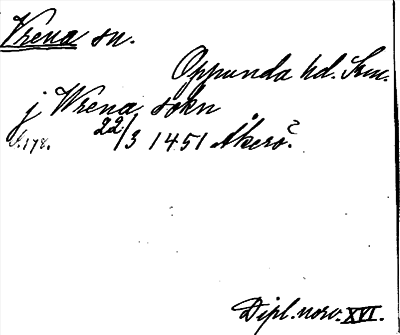 Vrena sn.
Oppunda hd. Srm.
j Wrena sokn
S. 178. 22/3 1451 Åkerö.
Dipl. norv. XVI.